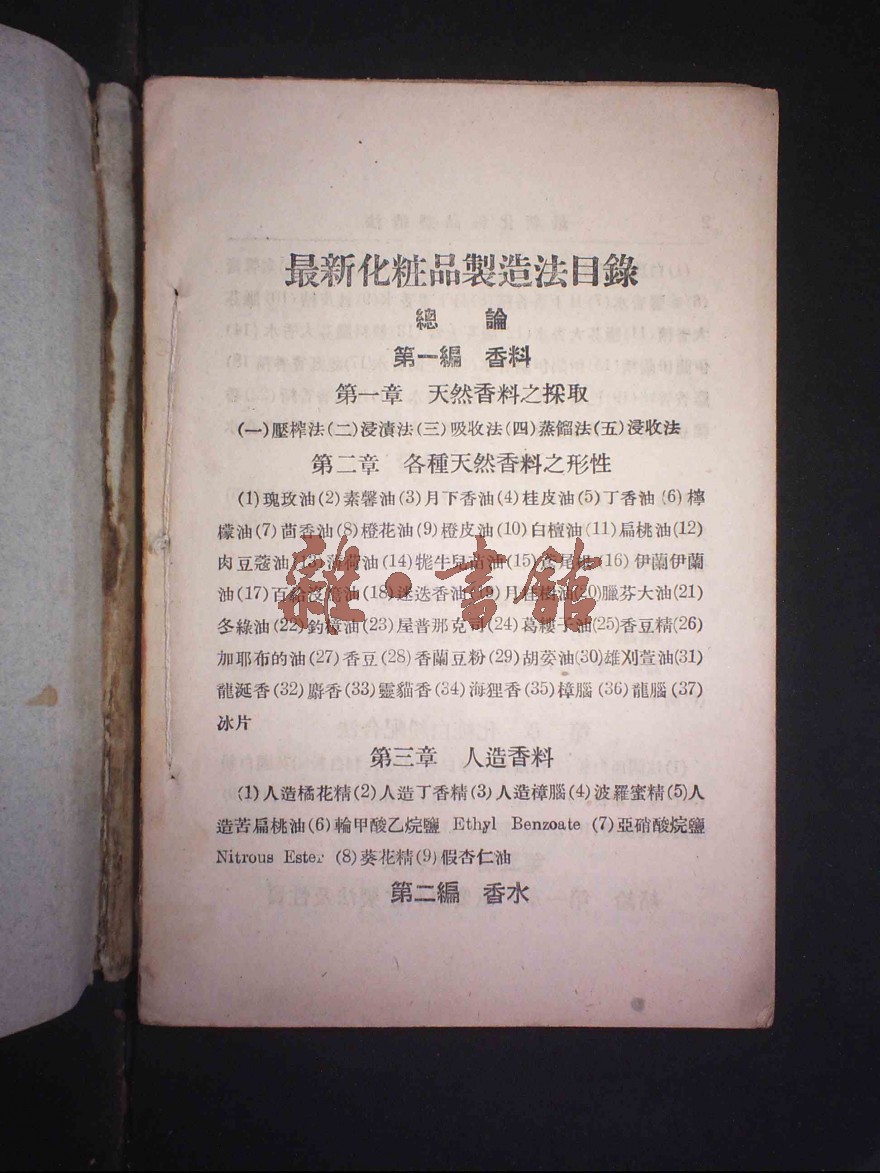 最新化粧品製造法目錄
總 論
第一編 香料
第一章 天然香料之採取
(一)壓榨法(二)浸漬法(三)吸收法(四)蒸餾法(五)浸收法
第二章 各種天然香料之形性
(1)瑰玫油(2)素馨油(3)月下香油(4)桂皮油(5)丁香油(6)檸
檬油(7)茴香油(8)橙花油(9)橙皮油(10)白檀油(11)扁桃油(12)
肉豆蔻油(13)薄荷油(14)牻牛兒苗油(15)鳶尾根(16)伊蘭伊蘭
油(17)百給沒油(18)迷迭香油(19)月桂樹油(20)臘芬大油(21)
冬綠油(22)釣樟油(23)屋普那克司(24)葛縷子油(25)香豆精(26)
加耶布的油(27)香豆(28)香蘭豆粉(29)胡荽油(30)雄刈萱油(31)
龍涎香(32)麝香(33)靈貓香(34)海狸香(35)樟腦(36)龍腦(37)
冰片
第三章 人造香料
(1)人造橘花精(2)人造丁香精(3)人造樟腦(4)波羅蜜精(5)人
造苦扁桃油(6)輪甲酸乙烷鹽 Ethyl Benzoate (7)亞硝酸烷鹽
Nitrous Ester (8)葵花精(9)假杏仁油
第二編 香水
雜·書館